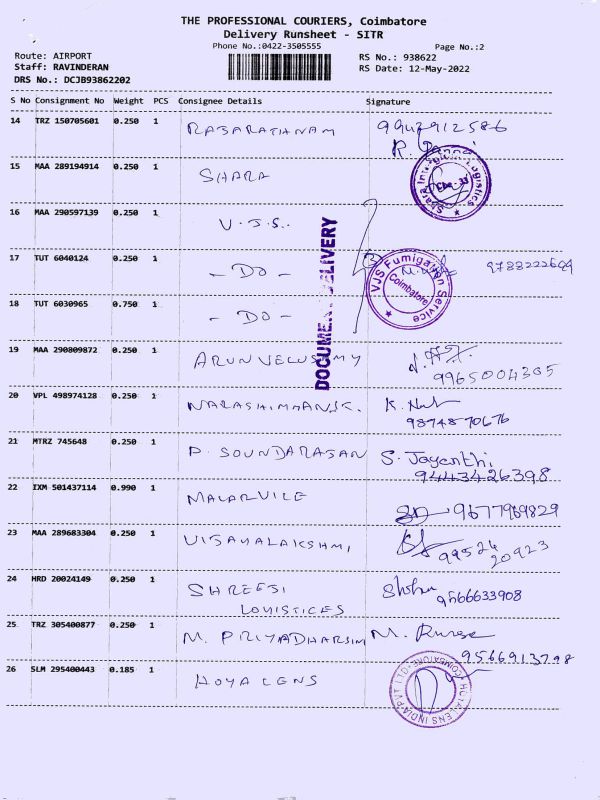 THE PROFESSIONAL COURIERS, Coimbatore
Delivery Runsheet - SITR
Phone No.:0422-3505555
Page No.:2
Route: AIRPORT
RS No.: 938622
Staff: RAVINDERAN
RS Date: 12-May-2022
DRS No.: DCJB93862202
S No Consignment No Weight PCS Consignee Details Signature
14 TRZ 150705601 0.250 1 RAJARATHNAM
15 MAA 289194914 0.250 1 SHARA
16 MAA 290597139 0.250 1 V.J.S.
DOCUMENT DELIVERY
17 TUT 6040124 0.250 1 - DO -
VJS Fumigation Service
Coimbatore
18 TUT 6030965 0.750 1 - DO -
19 MAA 290809872 0.250 1 ARUN VELUSAMY 9965004305
20 VPL 498974128 0.250 1 NARASHIMMAN.K. 9874870676
21 MTRZ 745648 0.250 1 P. SOUNDARAJAN S. Jayanthi
9443426398
22 IXM 501437114 0.990 1 MALARVILE 9677969829
23 MAA 289683304 0.250 1 VIJAYALAKSHMI 99524
20923
24 HRD 20024149 0.250 1 SHREEJI 9566633908
LOUISTICES
25 TRZ 305400877 0.250 1 M. PRIYADHARSINI
26 SLM 295400443 0.185 1 HOYA LENS
HOYA LENS INDIA PVT LTD
COIMBATORE